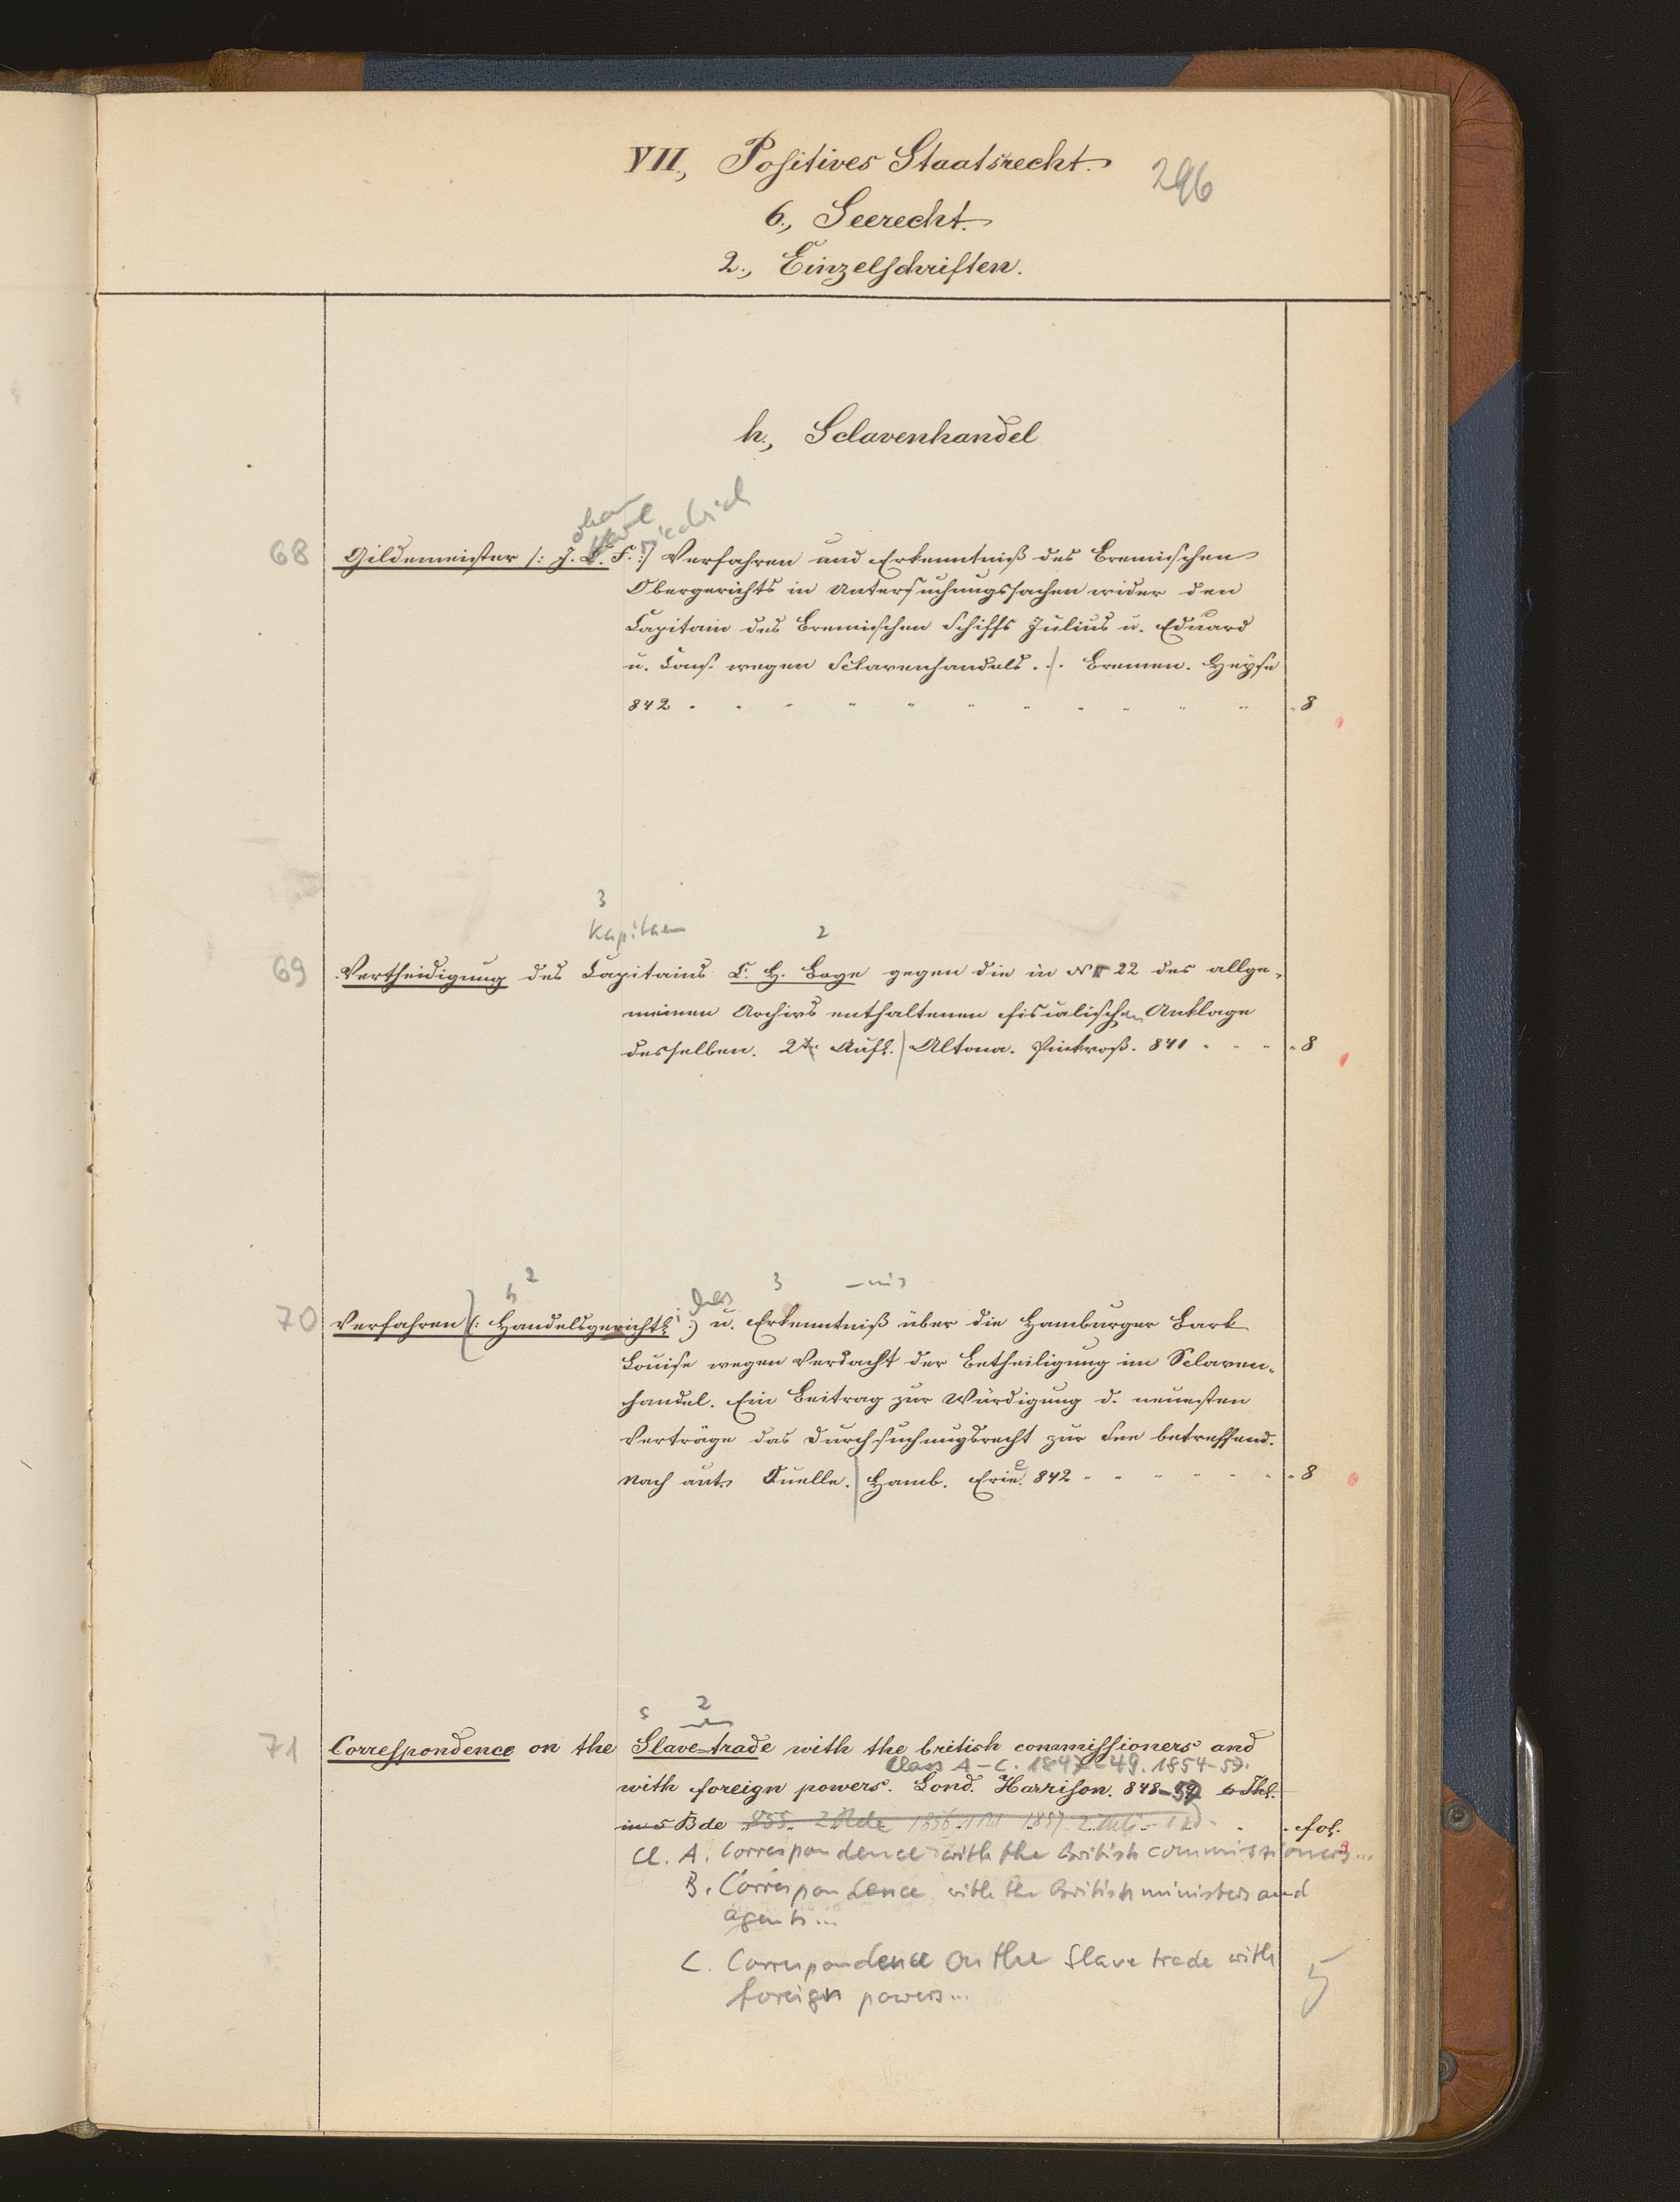 VII., Positives Staatsrecht.
296
6., Seerecht.
2., Einzelschriften.
h., Sclavenhandel
ohann arl riedrich
68 Gildemeister /: J. C. F. :/ Verfahren und Erkenntniß des Bremischen
Obergerichts in Untersuchungssachen wider den
Capitain des Bremischen Schiffs Julius u. Eduard
u. Cons. wegen Sclavenhandels. . Bremen. Heyse
842 8
3
Kapitaen 2
69 Vertheidigung des Capitains C. H. Boye gegen die in No 22 des allge-
meinen Archivs enthaltenen fiscalischen Anklage
desselben. 2te Aufl. Altona. 841 8
h 2 3 -nis
70 Verfahren (: Handelsgerichtl. :) u. Erkenntniß über die Hamburger Bark
Louise wegen Verdacht der Betheiligung im Sclaven-
handel. Ein Beitrag zur Würdigung d. neuesten
Verträge das Durchsuchungsrecht zur See betreffend.
Nach aut. Quelle. Hamb. Erie. 842 8
s 2
71 Correspondence on the Slave-trade with the british commissioners and
Class A-C. 1847-49. 1854-59.
with foreign powers. Lond. Harrison. 848-59 6 Thl.
in 5 Bde 855. 2 Bde 1856. 1 Bd 1857. fol.
Cl. A. Correspondence with the British commissioners...
B. Correspondence with the British ministers and
agents...
C. Correspondence on the Slave trade with
foreign powers...
5